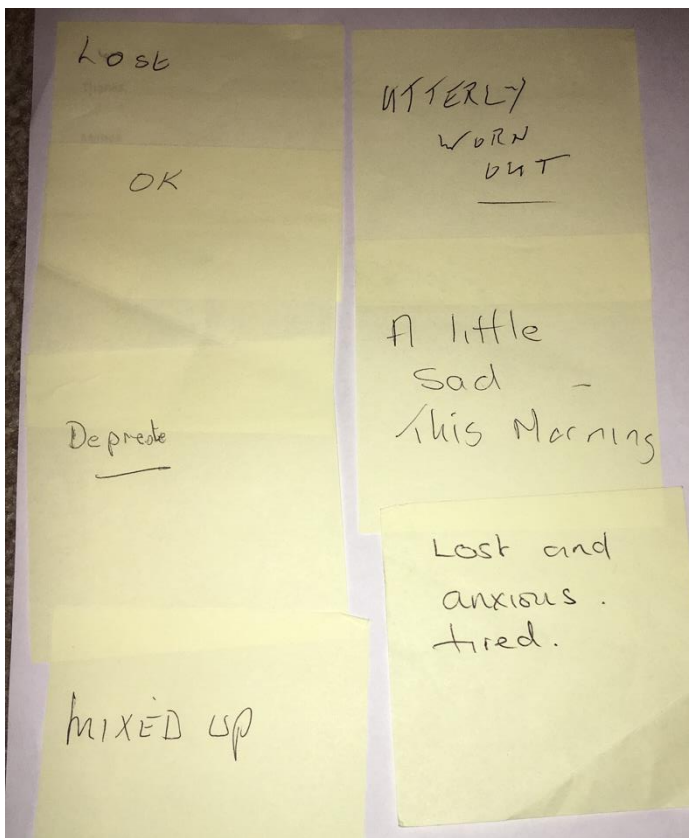 Lost
OK
Depreste
MIXED UP
UTTERLY
WORN
OUT
A little
Sad –
This Morning
Lost and
anxious.
tired.